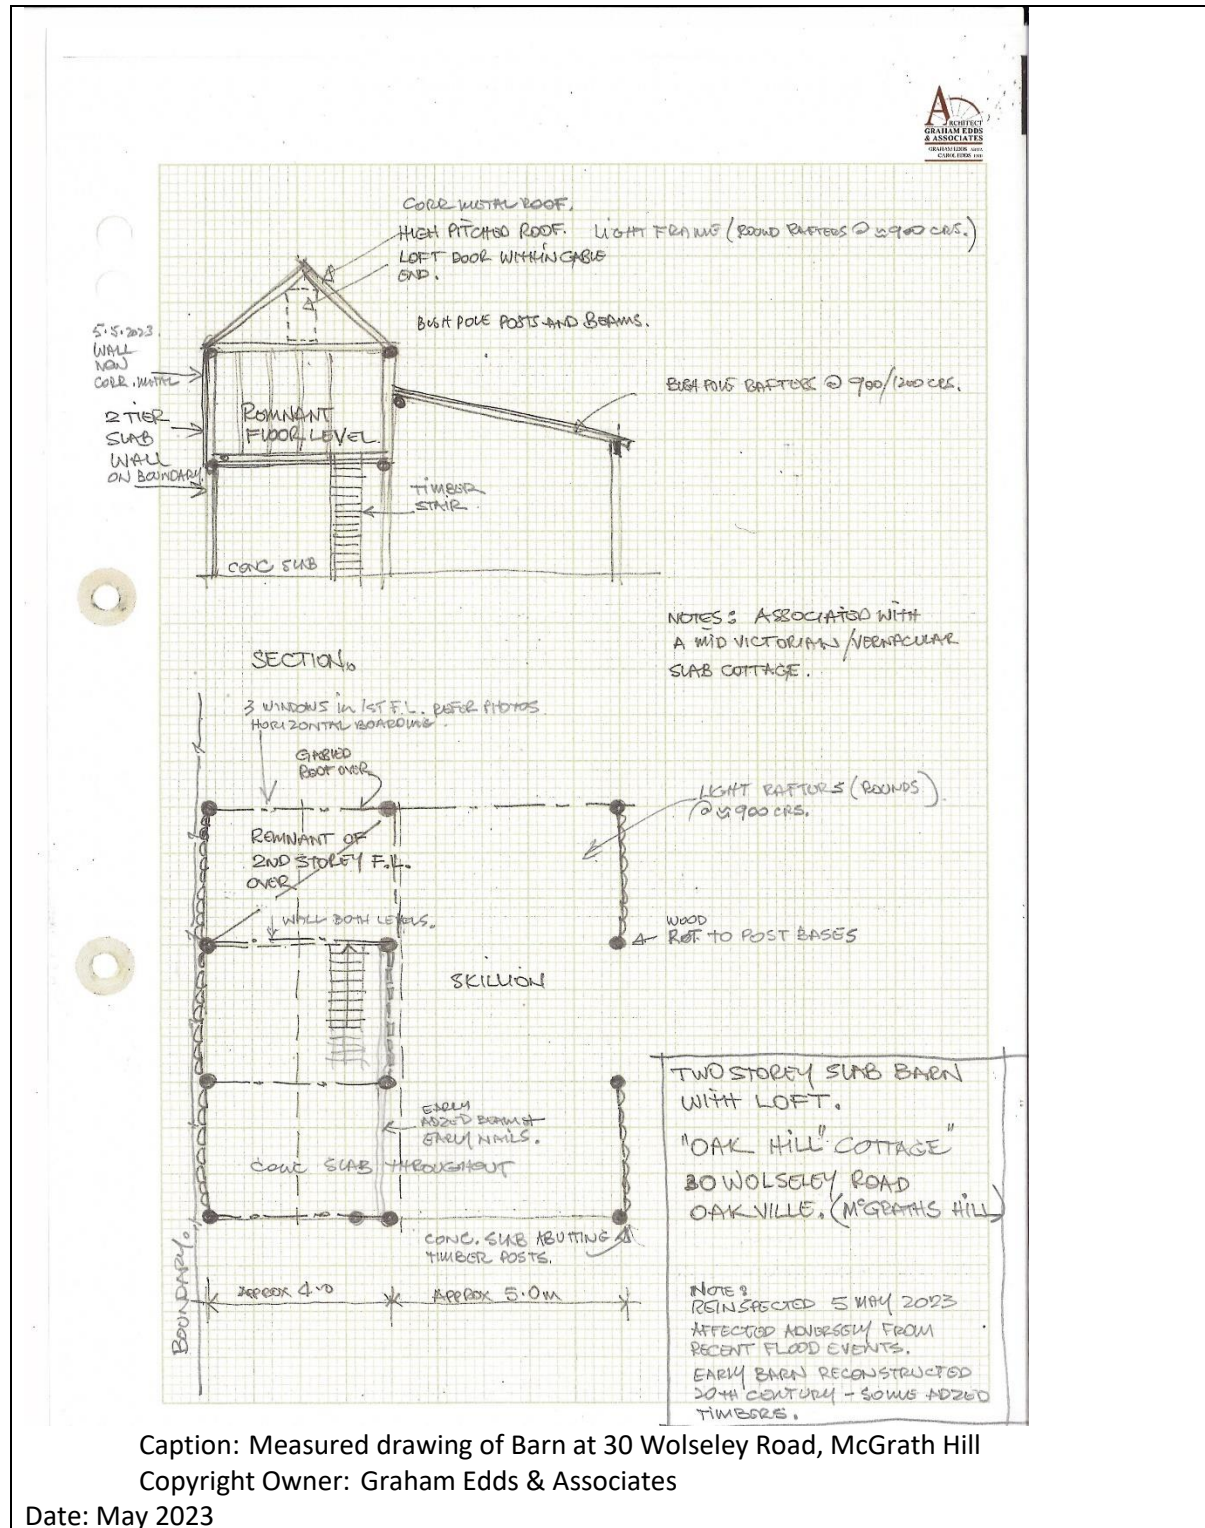 ARCHITECT
GRAHAM EDDS
& ASSOCIATES
GRAHAM EDDS
CAROL EDDS
CORR METAL ROOF.
HIGH PITCHED ROOF. LIGHT FRAME (ROUND RAFTERS @ ≈900 CRS.)
LOFT DOOR WITHIN GABLE
END.
BUSH POLE POSTS AND BEAMS.
5.5.2023.
WALL
NOW
CORR. METAL
BUSH POLE RAFTERS @ 900/1200 CRS.
2 TIER
SLAB
WALL
ON BOUNDARY.
REMNANT
FLOOR LEVEL.
TIMBER
STAIR.
CONC SLAB
NOTES: ASSOCIATED WITH
A MID VICTORIAN/VERNACULAR
SLAB COTTAGE.
SECTION.
3 WINDOWS in 1ST F.L. REFER PHOTOS
HORIZONTAL BOARDING.
GABLED
ROOF OVER
LIGHT RAFTORS (ROUNDS)
@ ≈900 CRS.
REMNANT OF
2ND STOREY F.L.
OVER
WALL BOTH LEVELS.
WOOD
ROT. TO POST BASES
SKILLION
EARLY
ADZED BEAM &
EARLY NAILS.
CONC SLAB THROUGHOUT
CONC. SLAB ABUTTING
TIMBER POSTS.
BOUNDARY
APPROX 4.0
APPROX 5.0m
TWO STOREY SLAB BARN
WITH LOFT.
"OAK HILL" COTTAGE"
30 WOLSELEY ROAD
OAKVILLE. (McGRATHS HILL)
NOTE:
REINSPECTED 5 MAY 2023
AFFECTED ADVERSELY FROM
RECENT FLOOD EVENTS.
EARLY BARN RECONSTRUCTED
20TH CENTURY - SOME ADZED
TIMBERS.
Caption: Measured drawing of Barn at 30 Wolseley Road, McGrath Hill
Copyright Owner: Graham Edds & Associates
Date: May 2023